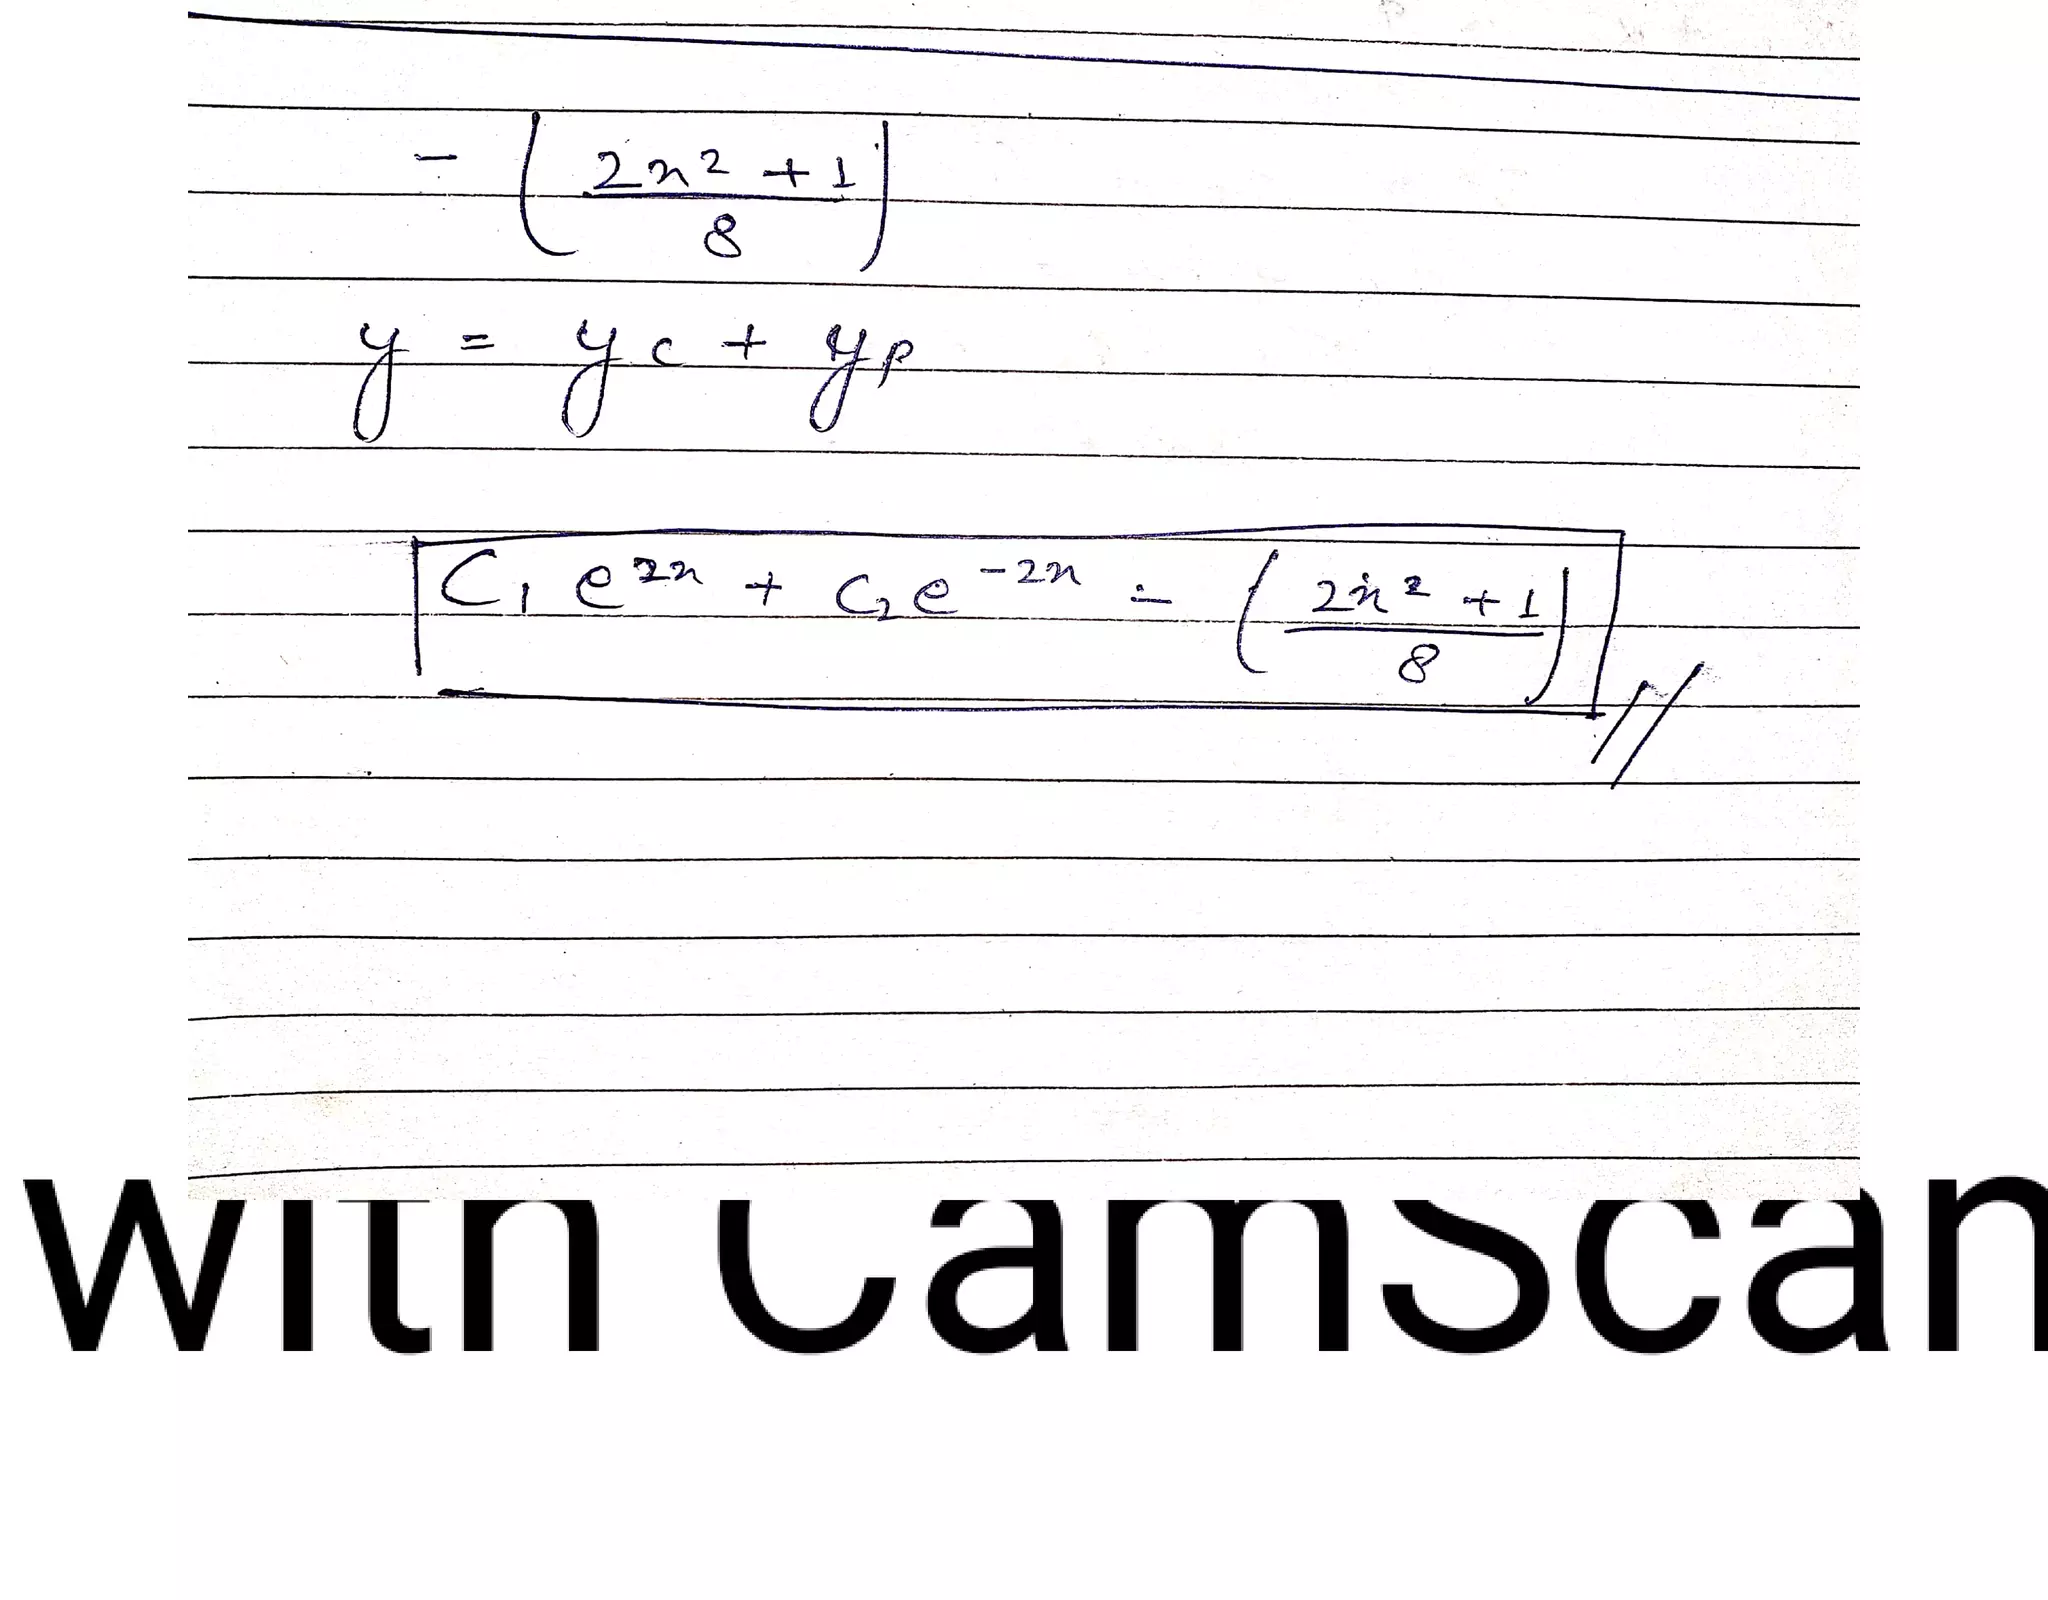 - (2x² + 1 / 8)
y = yc + yp
C₁ e²ˣ + C₂ e⁻²ˣ - (2x² + 1 / 8) //
with CamScan